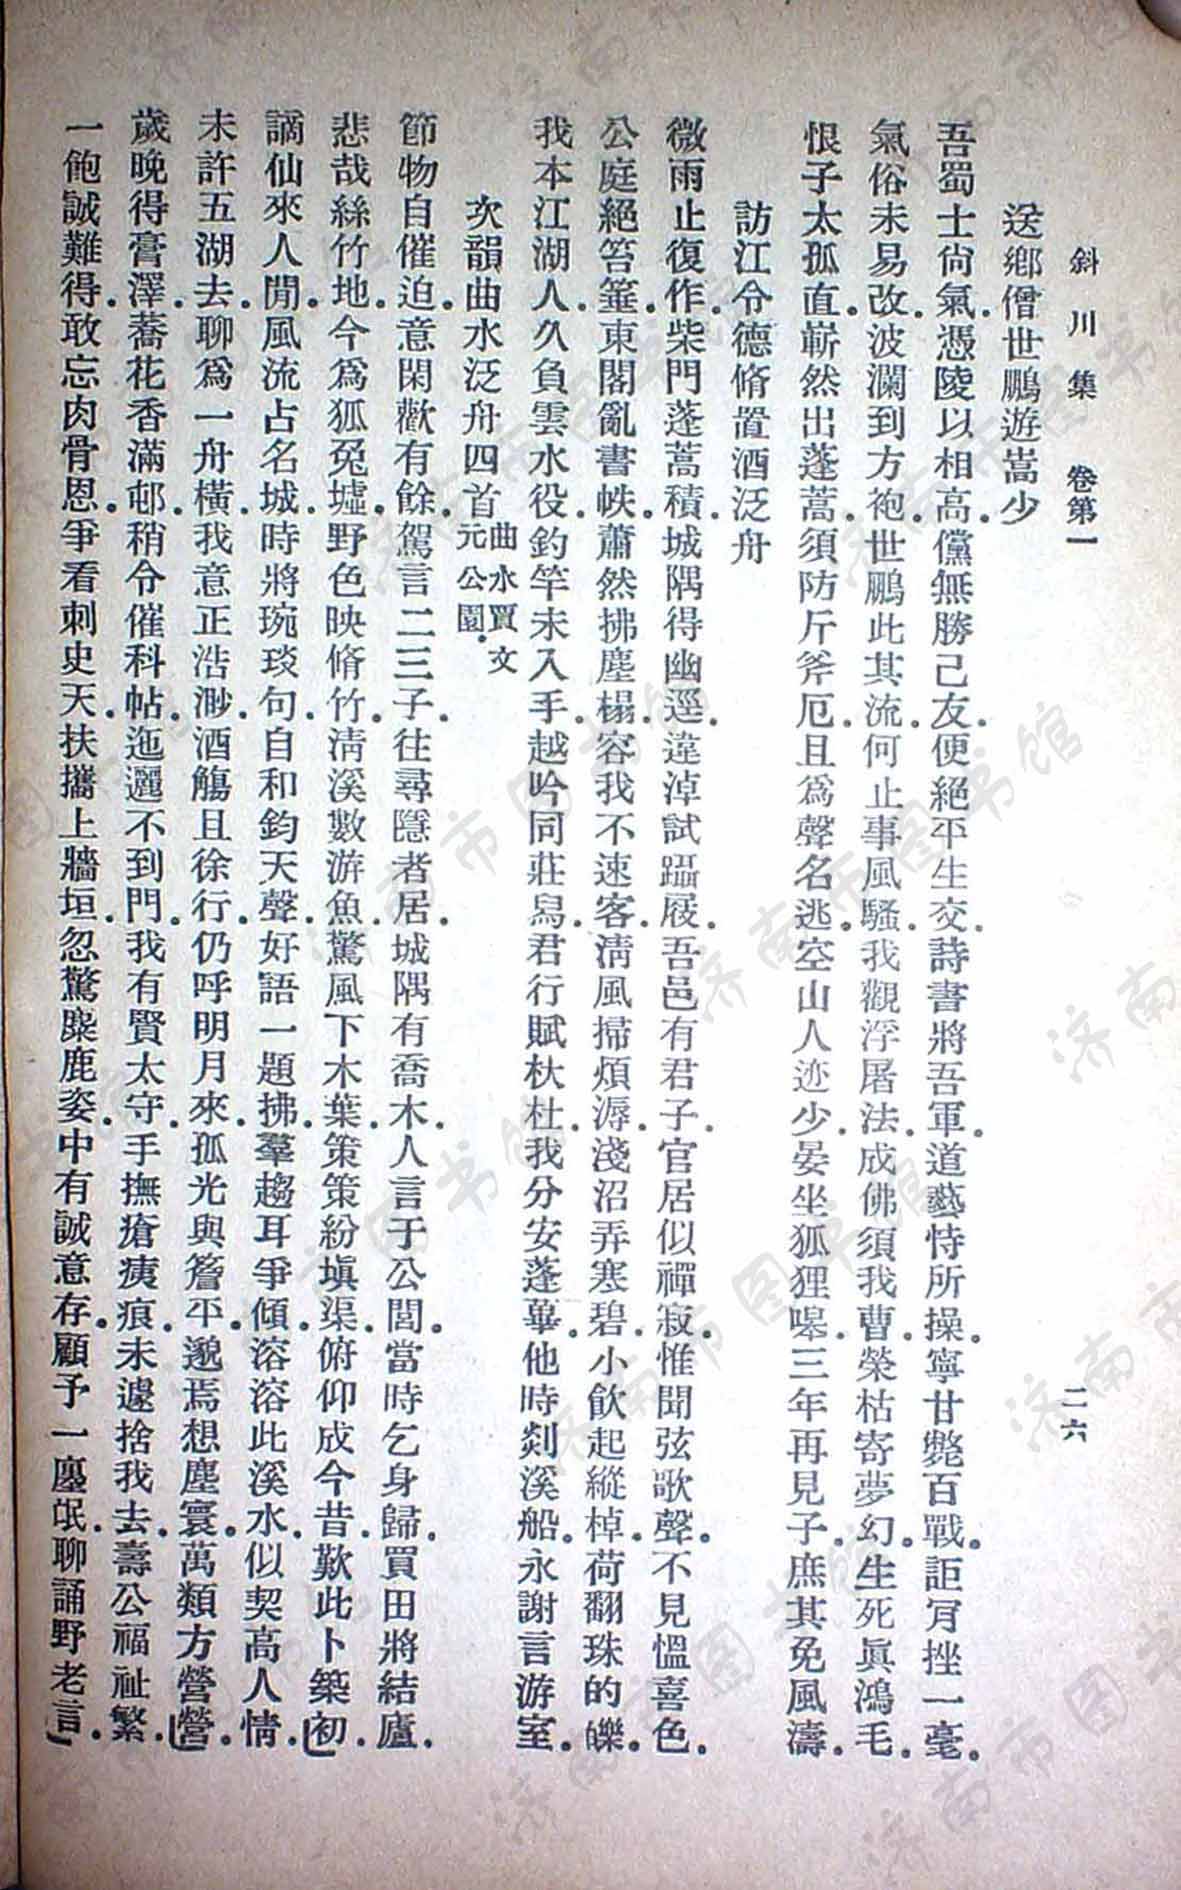 斜川集 卷第一 二六
送鄉僧世鵬遊嵩少
吾蜀士尙氣。憑陵以相高。儻無勝己友。便絕平生交。詩書將吾軍。道藝恃所操。寧甘斃百戰。詎肎挫一毫。
氣俗未易改。波瀾到方袍。世鵬此其流。何止事風騷。我觀浮屠法。成佛須我曹。榮枯寄夢幻。生死眞鴻毛。
恨子太孤直。嶄然出蓬蒿。須防斤斧厄。且爲聲名逃。空山人迹少。晏坐狐狸嘷。三年再見子。庶其免風濤。
訪江令德脩置酒泛舟
微雨止復作。柴門蓬蒿積。城隅得幽逕。違淖試躡屐。吾邑有君子。官居似禪寂。惟聞弦歌聲。不見慍喜色。
公庭絕笞箠。東閣亂書帙。蕭然拂塵榻。容我不速客。淸風掃煩溽。淺沼弄寒碧。小飮起縱棹。荷翻珠的皪。
我本江湖人。久負雲水役。釣竿未入手。越吟同莊舄。君行賦杕杜。我分安蓬蓽。他時剡溪船。永謝言游室。
次韻曲水泛舟四首 曲水賈文元公園。
節物自催迫。意閑歡有餘。駕言二三子。往尋隱者居。城隅有喬木。人言于公閭。當時乞身歸。買田將結廬。
悲哉絲竹地。今爲狐兔墟。野色映脩竹。淸溪數游魚。驚風下木葉。策策紛塡渠。俯仰成今昔。歎此卜築初。」
謫仙來人閒。風流占名城。時將琬琰句。自和鈞天聲。好語一題拂。羣趨耳爭傾。溶溶此溪水。似契高人情。
未許五湖去。聊爲一舟橫。我意正浩渺。酒觴且徐行。仍呼明月來。孤光與簷平。邈焉想塵寰。萬類方營營。」
歲晚得膏澤。蕎花香滿邨。稍令催科帖。迤邐不到門。我有賢太守。手撫瘡痍痕。未遽捨我去。壽公福祉繁。
一飽誠難得。敢忘肉骨恩。爭看刺史天。扶攜上牆垣。忽驚麋鹿姿。中有誠意存。顧予一廛氓。聊誦野老言。」